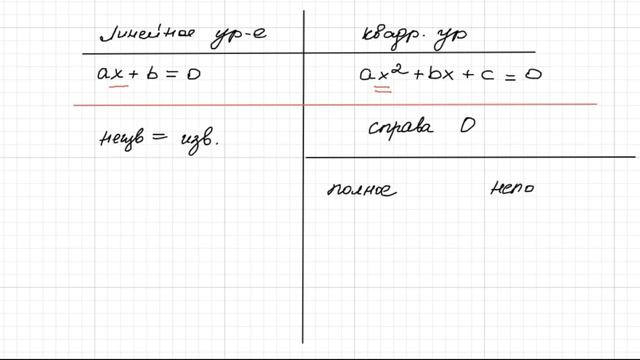 линейное ур-е
квадр. ур
ax + b = 0
ax² + bx + c = 0
неизв = изв.
справа 0
полное непо